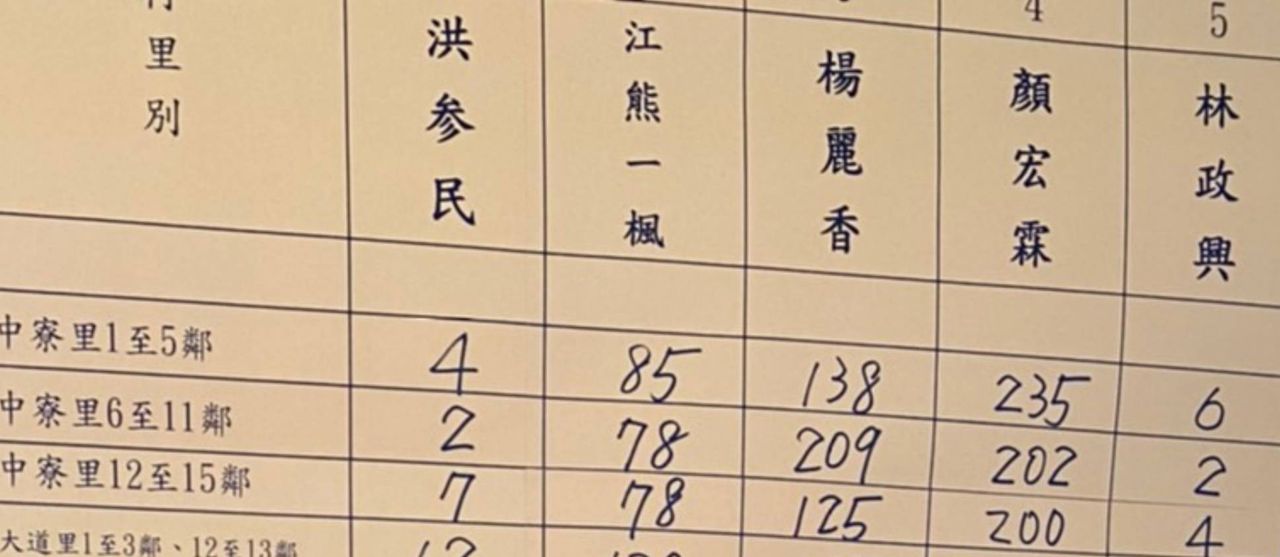 4 5
里別 洪参民 江熊一楓 楊麗香 顏宏霖 林政興
中寮里1至5鄰 4 85 138 235 6
中寮里6至11鄰 2 78 209 202 2
中寮里12至15鄰 7 78 125 200 4
大道里1至3鄰、12至13鄰